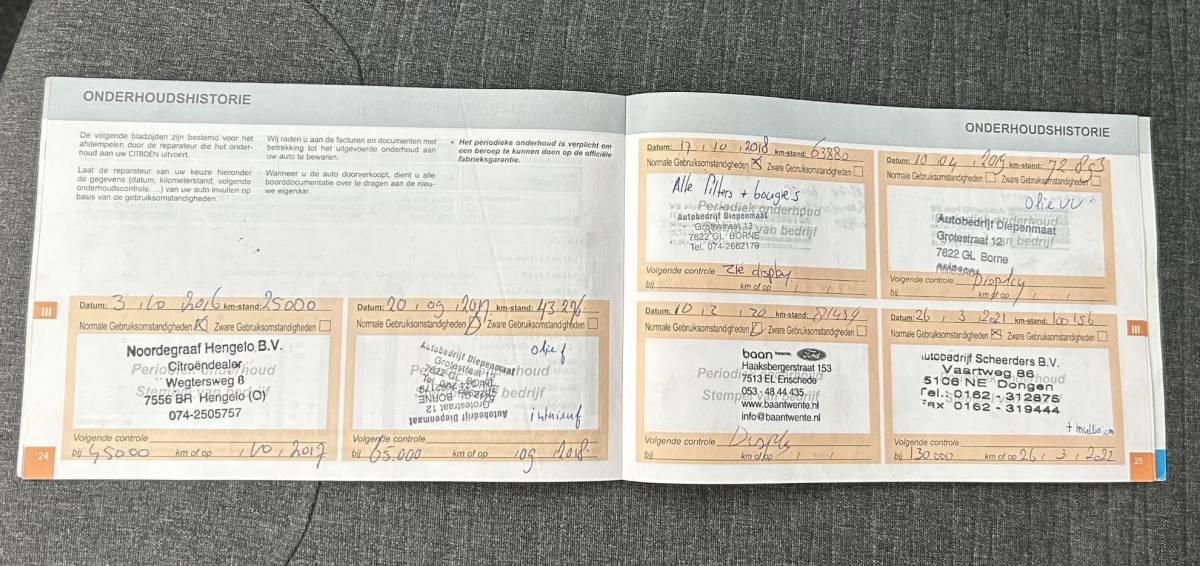 ONDERHOUDSHISTORIE
De volgende bladzijden zijn bestemd voor het
afstempelen door de reparateur die het onder-
houd aan uw CITROËN uitvoert.
Laat de reparateur van uw keuze hieronder
de gegevens (datum, kilometerstand, volgende
onderhoudscontrole, ...) van uw auto invullen op
basis van de gebruiksomstandigheden.
Wij raden u aan de facturen en documenten met
betrekking tot het uitgevoerde onderhoud aan
uw auto te bewaren.
Wanneer u de auto doorverkoopt, dient u alle
boorddocumentatie over te dragen aan de nieu-
we eigenaar.
• Het periodieke onderhoud is verplicht om
een beroep te kunnen doen op de officiële
fabrieksgarantie.
III
Datum: 3 , 10 , 2016 km-stand: 25000
Normale Gebruiksomstandigheden X Zware Gebruiksomstandigheden
Noordegraaf Hengelo B.V.
Citroëndealer
Periodiek onderhoud
Wegtersweg 8
Stempel van bedrijf
7556 BR Hengelo (O)
074-2505757
Volgende controle
bij 45000 km of op , 10 , 2017
24
Datum: 20 , 09 , 2017 km-stand: 43.226
Normale Gebruiksomstandigheden Zware Gebruiksomstandigheden
Autobedrijf Diepenmaat
Grotestraat 12
7622 GL BORNE
Autobedrijf Diepenmaat
Volgende controle
bij 65.000 km of op , 09 , 2018
ONDERHOUDSHISTORIE
Datum: 17 , 10 , 2018 km-stand: 63880
Normale Gebruiksomstandigheden X Zware Gebruiksomstandigheden
Alle filters + bougies
Periodiek onderhoud
Autobedrijf Diepenmaat
Grotestraat 12
Stempel van bedrijf
7622 GL BORNE
Tel. 074-2662179
Volgende controle zie display
bij km of op , ,
Datum: 10 04 , 2019 km-stand: 72.893
Normale Gebruiksomstandigheden Zware Gebruiksomstandigheden
Autobedrijf Diepenmaat
Grotestraat 12
7622 GL Borne
Volgende controle Display
bij km of op , ,
Datum: 10 , 2 , 20 km-stand: 81439
Normale Gebruiksomstandigheden Zware Gebruiksomstandigheden
baan twente Ford
Haaksbergerstraat 153
7513 EL Enschede
053 - 48 44 435
www.baantwente.nl
info@baantwente.nl
Volgende controle Display
bij km of op , ,
Datum: 26 , 3 , 2021 km-stand: 100156
Normale Gebruiksomstandigheden X Zware Gebruiksomstandigheden
Autobedrijf Scheerders B.V.
Vaartweg 86
5106 NE Dongen
Tel.: 0162 - 312875
Fax 0162 - 319444
Volgende controle
bij 130000 km of op 26 , 3 , 2022
III
25